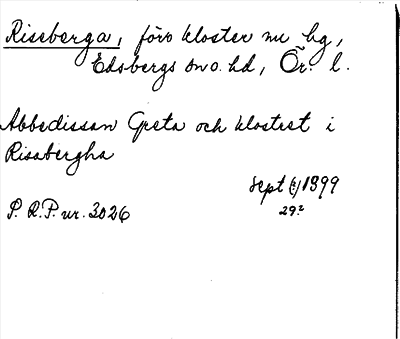 Riseberga, förv kloster nu hg,
Edsbergs sn o. hd, Ör. l.
Abbedissan Greta och klostret i
Risabergha
sept 1399
29?
S. R. P. nr. 3026